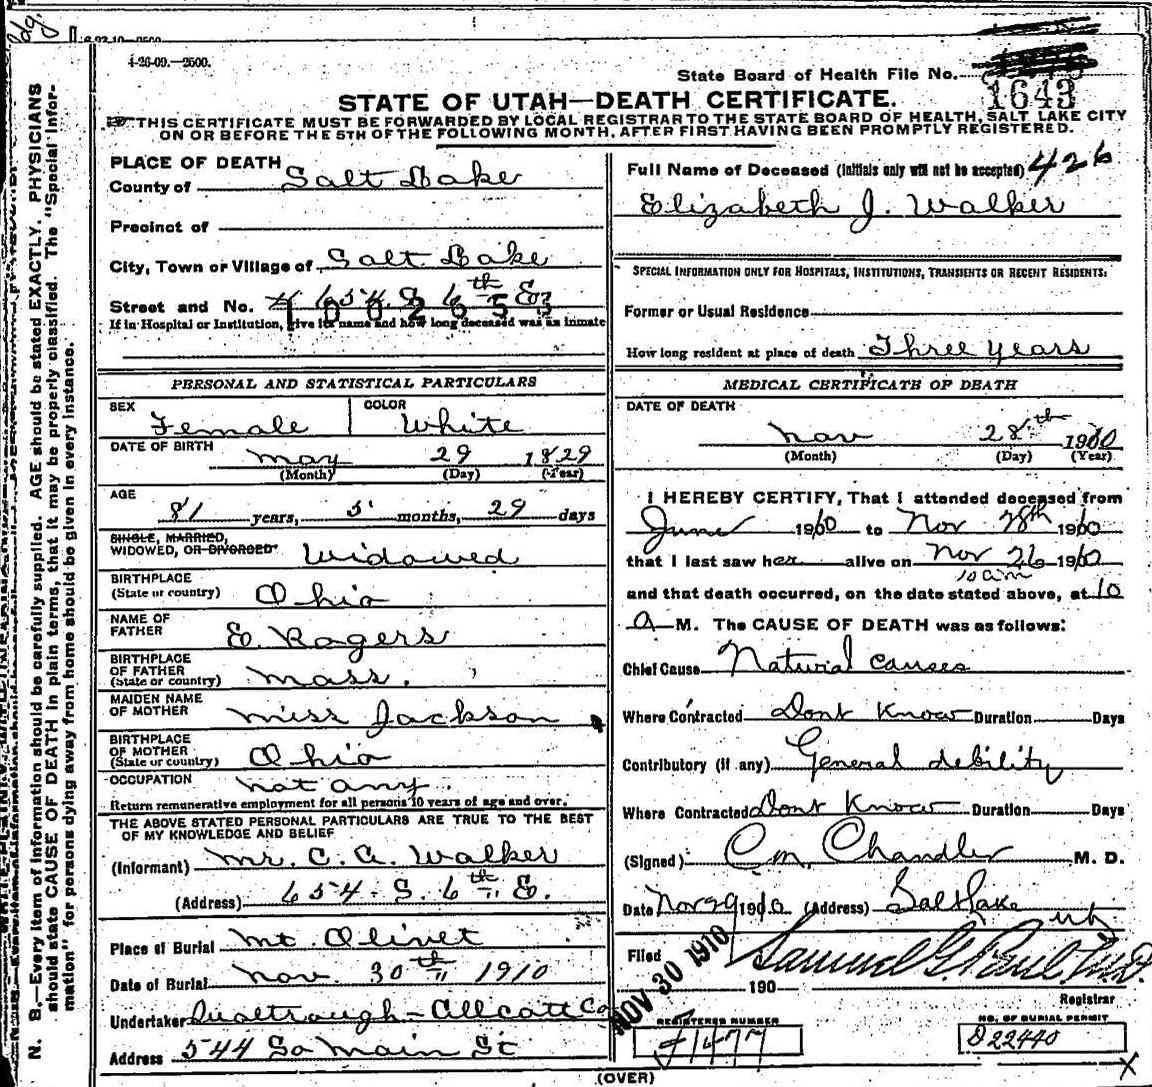 dg.
4-26-09.—2500.
State Board of Health File No.
1643
STATE OF UTAH—DEATH CERTIFICATE.
THIS CERTIFICATE MUST BE FORWARDED BY LOCAL REGISTRAR TO THE STATE BOARD OF HEALTH, SALT LAKE CITY
ON OR BEFORE THE 5TH OF THE FOLLOWING MONTH, AFTER FIRST HAVING BEEN PROMPTLY REGISTERED.
N. B.—Every item of information should be carefully supplied. AGE should be stated EXACTLY. PHYSICIANS
should state CAUSE OF DEATH in plain terms, that it may be properly classified. The "Special Infor-
mation" for persons dying away from home should be given in every instance.
PLACE OF DEATH
County of Salt Lake
Precinct of
City, Town or Village of Salt Lake
Street and No. 654 S 6th E
If in Hospital or Institution, give its name and how long deceased was an inmate
PERSONAL AND STATISTICAL PARTICULARS
SEX Female COLOR White
DATE OF BIRTH May 29 1829
(Month) (Day) (Year)
AGE
81 years, 5 months, 29 days
SINGLE, MARRIED,
WIDOWED, OR DIVORCED Widowed
BIRTHPLACE
(State or country) Ohio
NAME OF
FATHER E. Rogers
BIRTHPLACE
OF FATHER
(State or country) Mass.
MAIDEN NAME
OF MOTHER Miss Jackson
BIRTHPLACE
OF MOTHER
(State or country) Ohio
OCCUPATION not any.
Return remunerative employment for all persons 10 years of age and over.
THE ABOVE STATED PERSONAL PARTICULARS ARE TRUE TO THE BEST
OF MY KNOWLEDGE AND BELIEF
(Informant) Mr. C. A. Walker
(Address) 654 S. 6th E.
Place of Burial Mt Olivet
Date of Burial Nov. 30th 1910
Undertaker Qualtrough-Allcott Co
Address 544 So Main St
Full Name of Deceased (Initials only will not be accepted) 426
Elizabeth J. Walker
SPECIAL INFORMATION ONLY FOR HOSPITALS, INSTITUTIONS, TRANSIENTS OR RECENT RESIDENTS:
Former or Usual Residence
How long resident at place of death Three years
MEDICAL CERTIFICATE OF DEATH
DATE OF DEATH
Nov 28th 1910
(Month) (Day) (Year)
I HEREBY CERTIFY, That I attended deceased from
June 1910 to Nov 28th 1910
that I last saw her alive on Nov 26 1910
10 am
and that death occurred, on the date stated above, at 10
A M. The CAUSE OF DEATH was as follows:
Chief Cause Natural causes
Where Contracted Dont Know Duration Days
Contributory (if any) General debility
Where Contracted Dont Know Duration Days
(Signed) C M. Chandler M. D.
Date Nov 29 1910 (Address) Salt Lake
Ut
Filed NOV 30 1910 190 Samuel G. Paul M.D.
Registrar
REGISTERED NUMBER
1477
NO. OF BURIAL PERMIT
D 22440
(OVER)
X